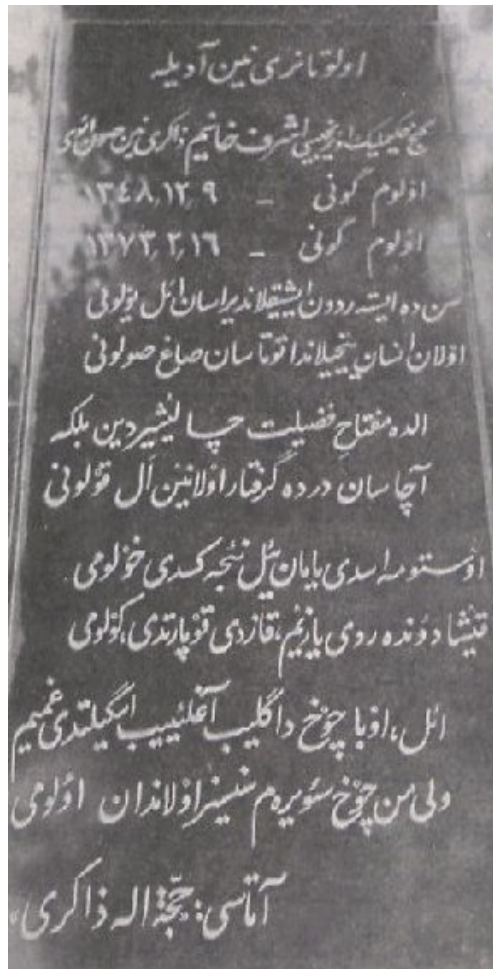 اولو تانری نین آدیله
گنج حکیملیک اؤیرنجیسی اشرف خانیم ذاکری نین صون ائوی
اؤلوم گونی - ۱۳۴۸,۱۲,۹
اؤلوم گونی - ۱۳۷۳,۲,۱۶
سن ده ایسته ردون ایشیقلاندیراسان ائل یوْلونی
اوْلان انسان ینجیلاندا توتاسان صاغ صولونی
الده مفتاح فضیلت چالیشیردین بلکه
آچاسان درده گرفتار اوْلانین اَل قوْلونی
اوستومه اسدی یامان یئل نئجه کسدی خوْلومی
قیشا دؤنده ردی یازیم، قازدی قوْپارتدی، کوْلومی
ائل، اوْبا چوْخ دا گلیب آغلییب ایگیلتدی غمیم
ولی من چوْخ سئویره م سنسیز اوْلاندان اؤلومی
آتاسی: حجّة اله ذاکری